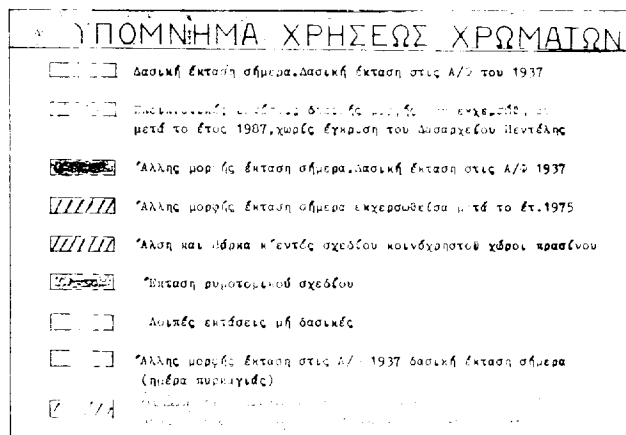 ΥΠΟΜΝΗΜΑ ΧΡΗΣΕΩΣ ΧΡΩΜΑΤΩΝ
Δασική έκταση σήμερα.Δασική έκταση στις Α/Φ του 1937
μετά το έτος 1987,χωρίς έγκριση του Δασαρχείου Πεντέλης
Άλλης μορφής έκταση σήμερα.Δασική έκταση στις Α/Φ 1937
Άλλης μορφής έκταση σήμερα εκχερσωθείσα μετά το έτ.1975
Άλση και Πάρκα κ'εντός σχεδίου κοινόχρηστοί χώροι πρασίνου
Έκταση ρυμοτομικού σχεδίου
Λοιπές εκτάσεις μή δασικές
Άλλης μορφής έκταση στις Α/ 1937 δασική έκταση σήμερα
(ημέρα πυρκαγιάς)